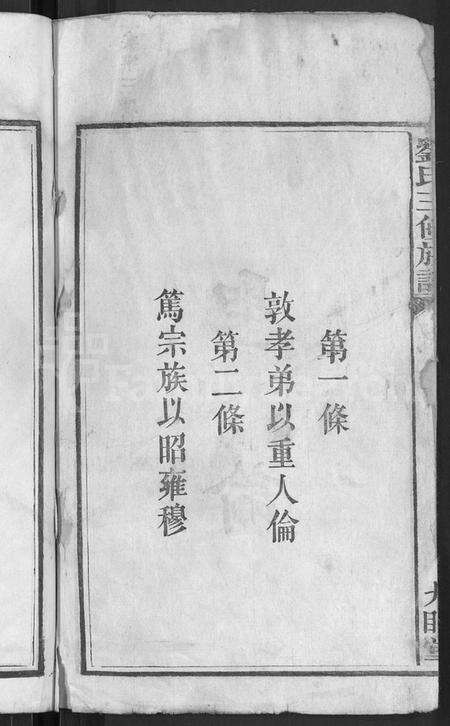 劉氏三修族譜
第一條
敦孝弟以重人倫
第二條
篤宗族以昭雍穆